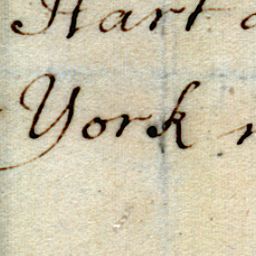 Hart
York